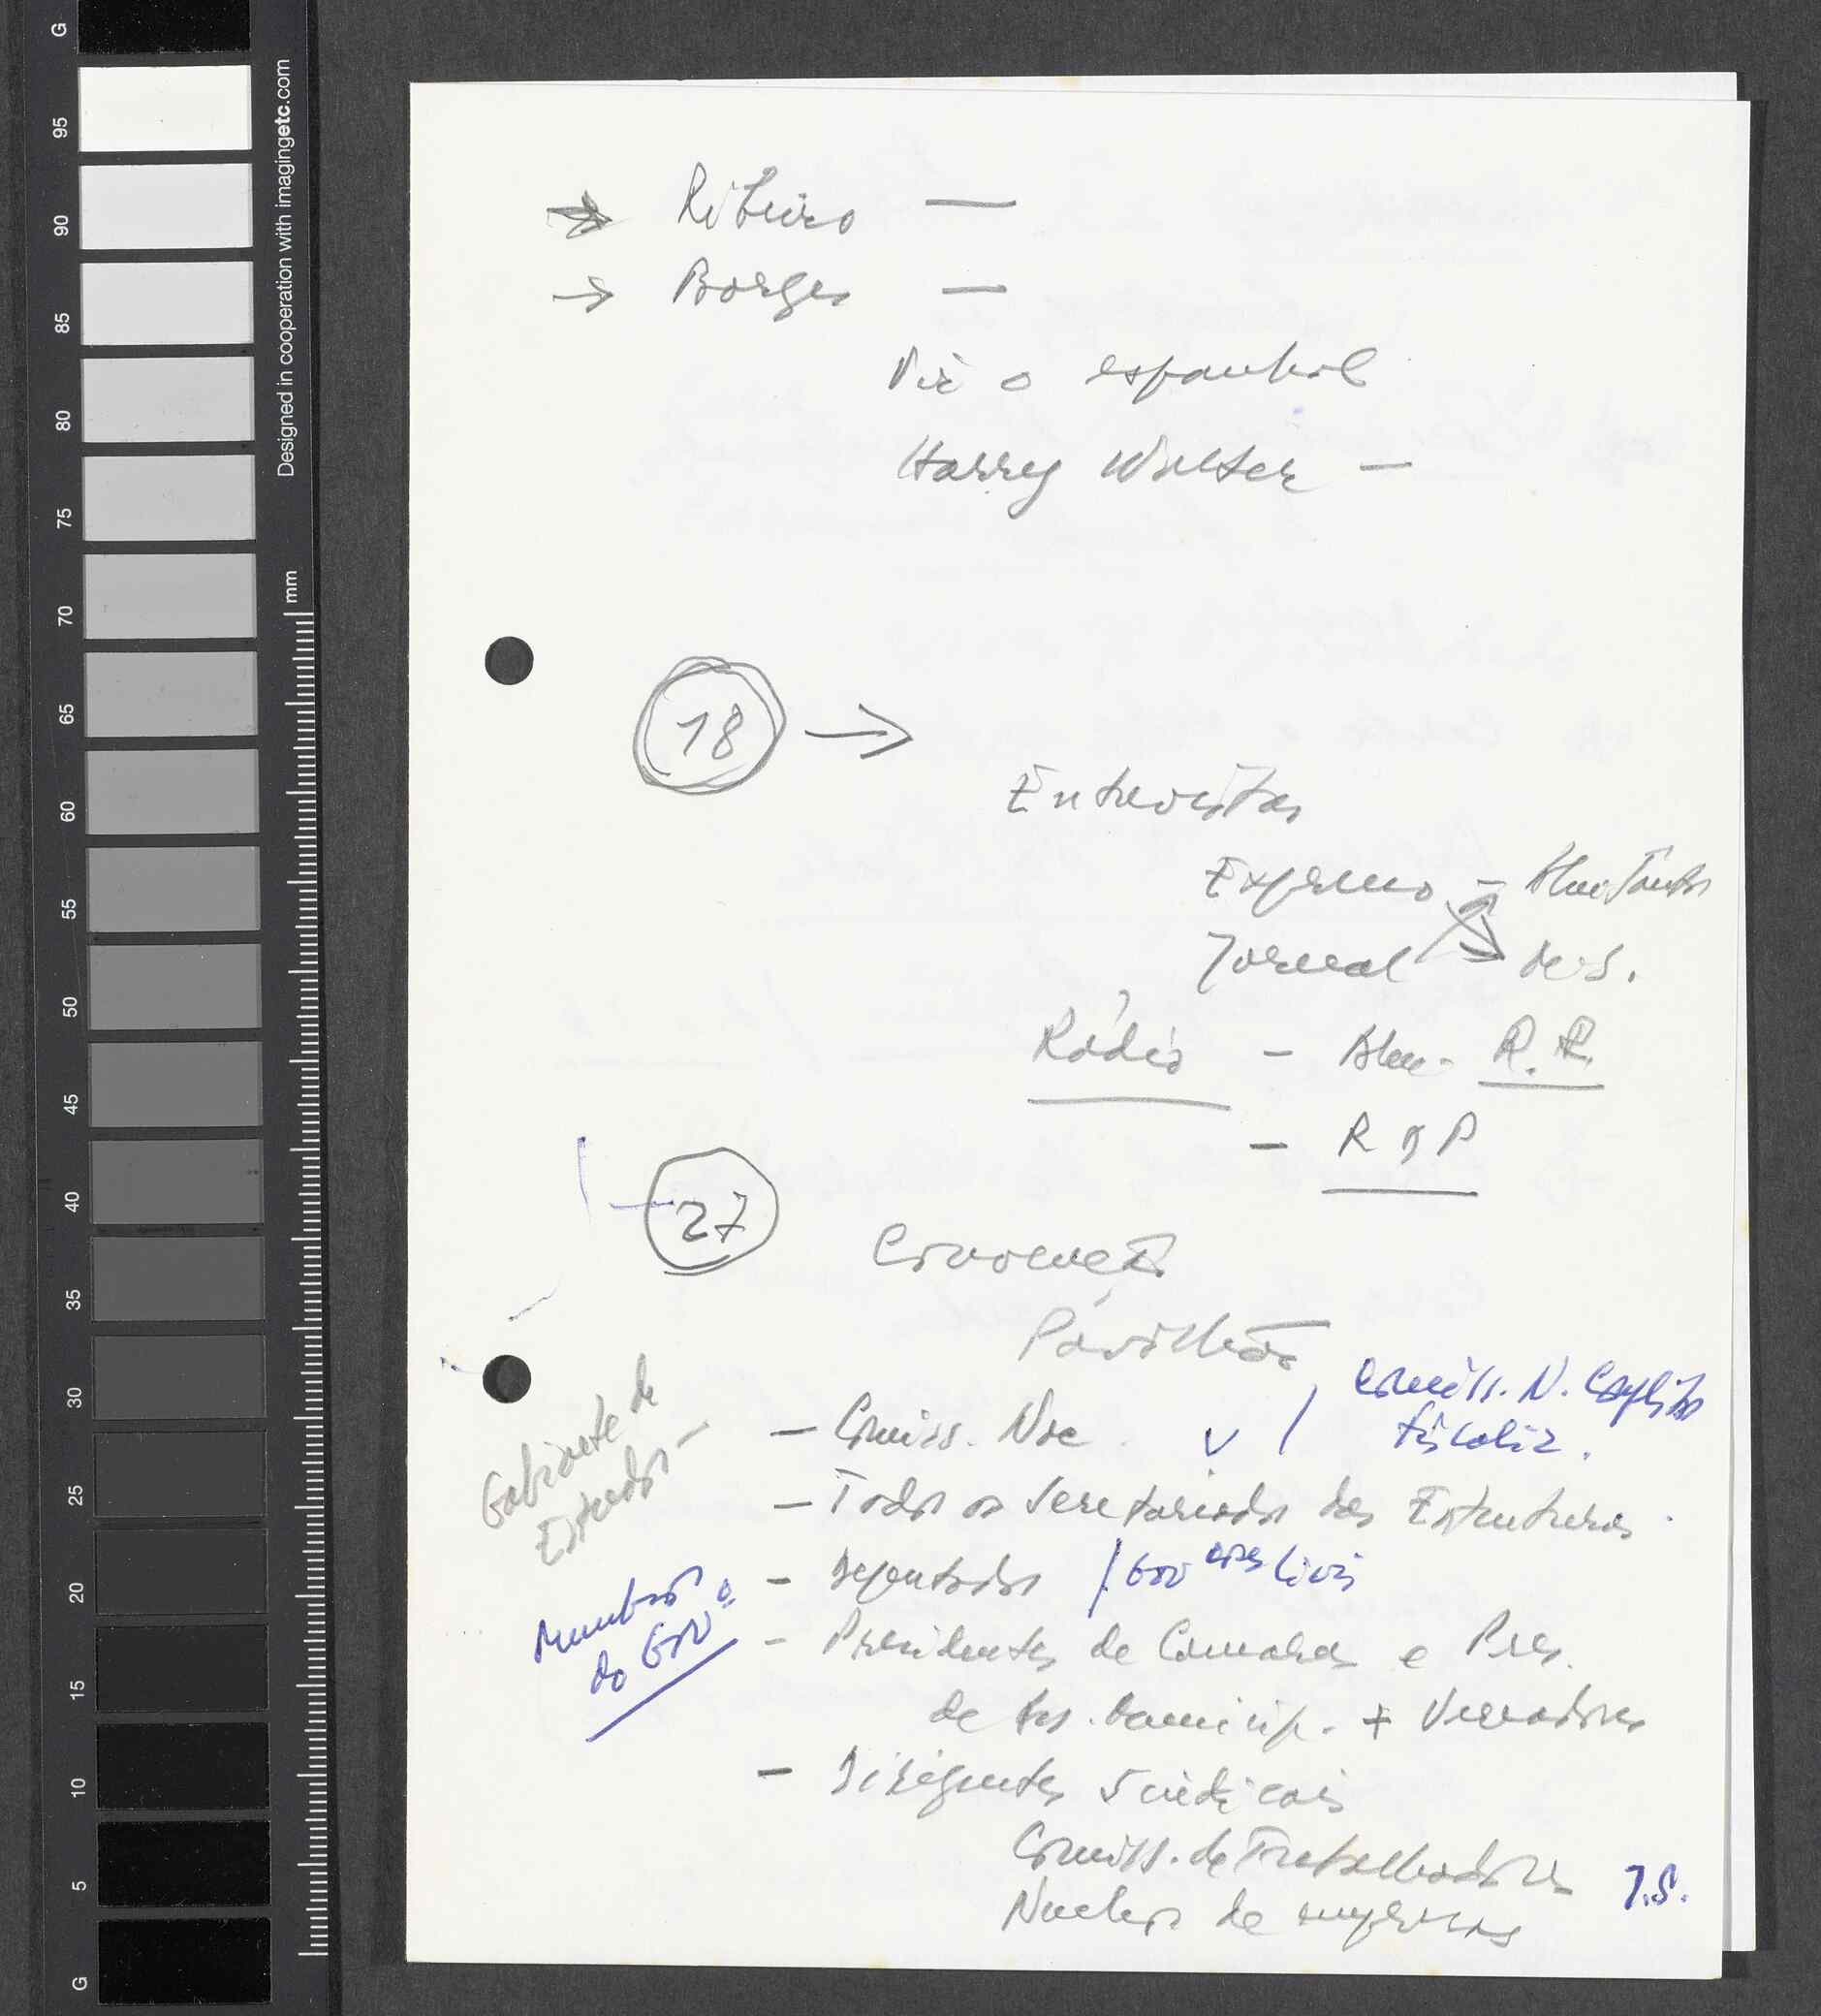 G
95
90
85
80
75
70
65
60
55
50
45
40
35
30
25
20
15
10
5
G
Designed in cooperation with imagingetc.com
mm
→ Ribeiro —
→ Borges —
o espanhol
Harry Walter —
18 →
Entrevistas
Expresso –
Jornal
Rádio – R.R.
– RDP
27
Convocação
Pavilhão
Comiss. N.
fiscaliz.
Gabinete de
Estudos –
– Comiss. Nac.
– Todos os Secretariados das Estruturas
– Deputados / Gov ores Civis
Membros
do Govº
– Presidentes de Camaras e Pres.
de As. Municip. + Vereadores
– Dirigentes Sindicais
Comiss. de Trabalhadores
Nucleos de empresas
J.S.